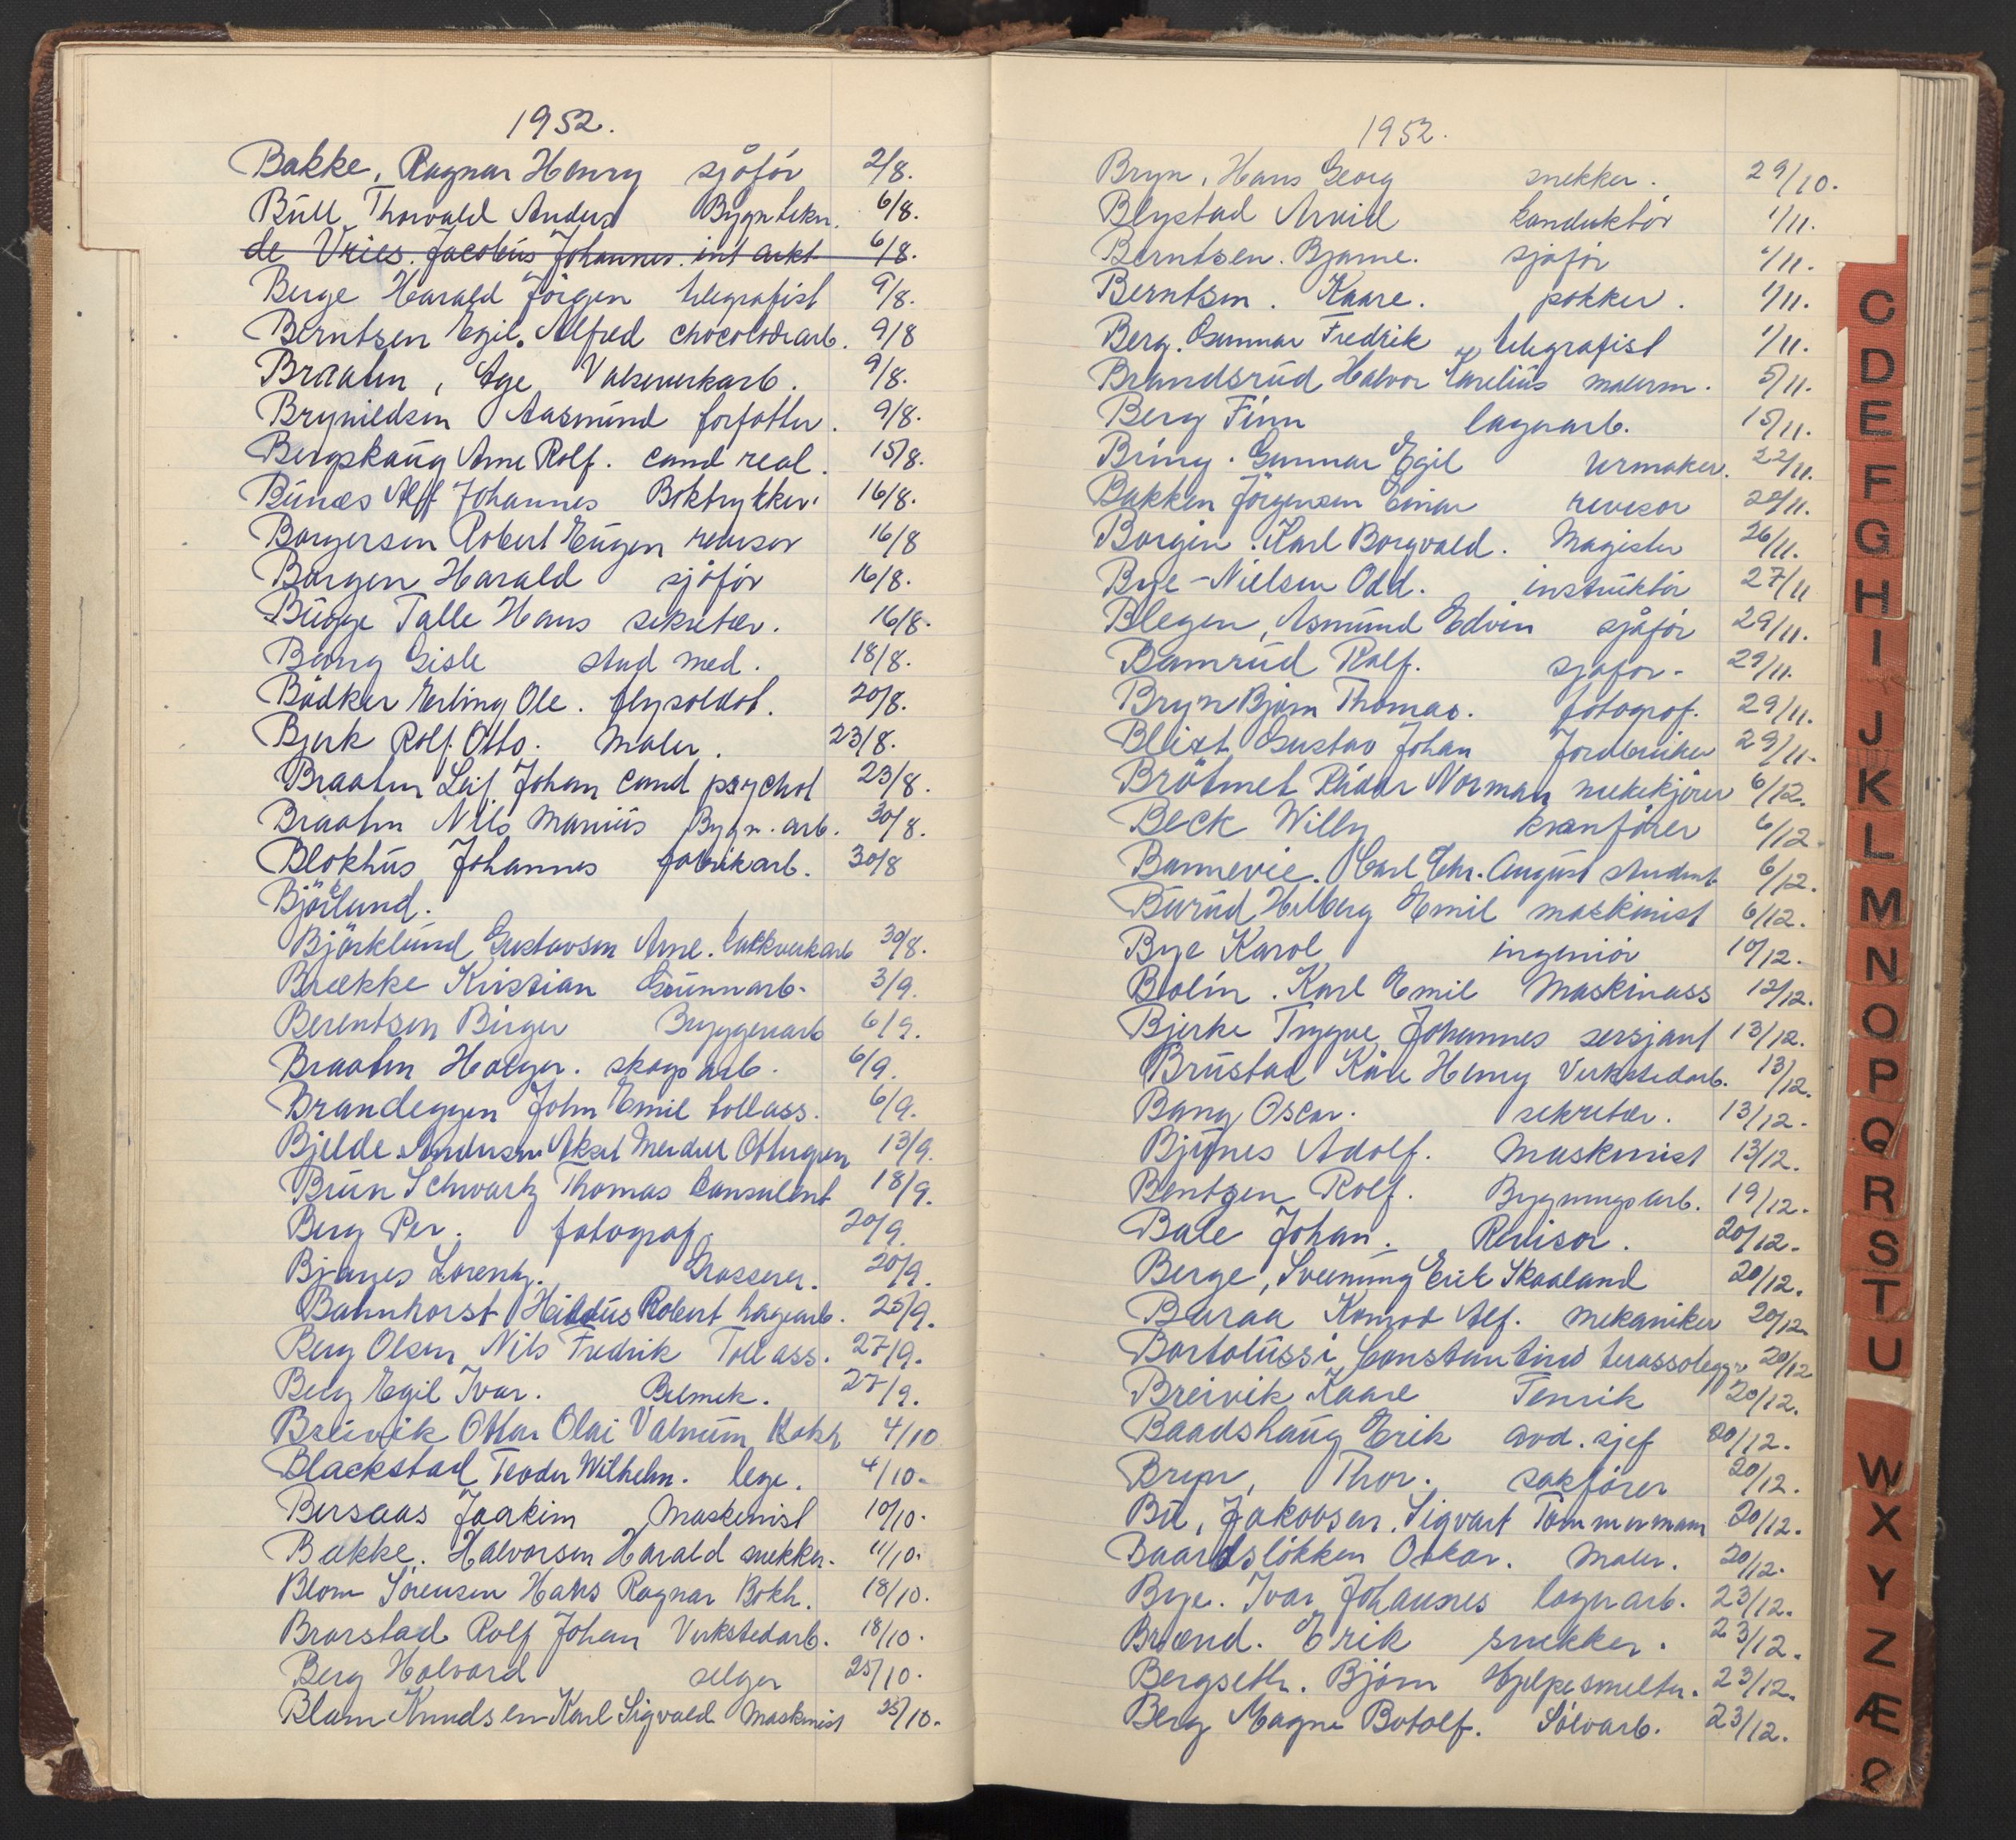 1952.
Bakke, Ragnar Henry sjåför 2/8.
Büll Thorvald Anders Bygn tekn. 6/8.
de Vries. Jacobüs Johannes. int arkt 6/8.
Berge Harald Jörgen telegrafist 9/8.
Berntsen Egil. Alfred chocoladearb. 9/8
Braaten, Åge Valseverkarb. 9/8.
Brynildsen Aasmünd forfatter. 9/8.
Bergskaüg Arne Rolf. cand real. 15/8.
Bünæs Alf Johannes Boktrykker. 16/8.
Borgersen Robert Eügen revisor 16/8
Borgen Harald sjåför 16/8.
Bügge Talle Hans sekretær. 16/8.
Bang Gisle stud med. 18/8.
Bödker Erling Ole. flysoldat. 20/8.
Bjerk Rolf. Otto. Maler. 23/8.
Braaten Leif Johan cand psychol 23/8.
Braaten Nils Mariüs Bygn. arb. 30/8.
Blokhüs Johannes fabrikarb. 30/8
Björlund.
Björklünd Gustavsen Arne. lakkverkarb 30/8.
Brække Kristian Grünnarb. 3/9.
Berentsen Birger Bryggeriarb 6/9.
Braaten Holger. skogsarb. 6/9.
Brandeggen John Emil tollass. 6/9.
Bjelde Andersen Aksel 13/9.
Brün Schwartz Thomas Consulent 18/9.
Berg Per. fotograf. 20/9.
Bjanes Lorentz. Grosserer. 20/9.
Bahnhorst Robert hagearb. 25/9.
Berg Olsen Nils Fredrik Toll ass. 27/9.
Berg Egil Ivar. Bilmek. 27/9.
Breivik Ottar Olai Valnüm Kokk 4/10
Blackstad Teodor Wilhelm. lege. 4/10.
Bersaas Joakim Maskinist 10/10.
Bakke. Halvorsen Harald snekker. 11/10.
Blom Sörensen Hans Ragnar Bokh. 18/10.
Brorstad Rolf Johan Verkstedarb. 18/10.
Berg Halvard selger 25/10.
Blom Knudsen Karl Sigvald Maskinist 25/10.
1952.
Bryn, Hans Georg snekker. 29/10.
Blystad Arvid konduktör 1/11.
Berntsen. Bjarne. sjåför 1/11.
Berntsen. Kaare. pakker. 1/11.
Berg. Gunnar Fredrik telegrafist 1/11.
Brandsrüd Halvor Kareliüs malerm. 5/11.
Berg Finn lagerarb. 15/11.
Bring. Gunnar Egil Urmaker. 22/11.
Bakken Jörgensen Einar revisor 22/11.
Borgin. Karl Borgvald. Magister 26/11.
Bye-Nielsen Odd. instrüktör 27/11
Blegen, Asmünd Edvin sjåför 29/11.
Bamrüd Rolf. sjåför. 29/11.
Bryn Bjørn Thomas. fotograf. 29/11.
Blixt Gustav Johan Jordbruker 29/11.
Bråtmet Norman 6/12.
Beck Willy kranförer 6/12.
Bonnevie. Carl Chr. August student 6/12.
Bürüd Helberg Emil maskinist 6/12.
Bye Karol ingeniör 10/12.
Bolin. Karl Emil Maskinass 12/12.
Bjerke Trygve Johannes sersjant 13/12.
Brüstad Kåre Henry Verkstedarb. 13/12.
Bang Oscar. sekretær. 13/12.
Bjynes Adolf. Maskinist 13/12.
Bentzen Rolf. Bygningsarb. 19/12.
Bale Johan. Revisor. 20/12.
Berge, Sveinüng Erik Skaaland 20/12.
Baraa Konrad Alf. mekaniker 20/12.
Bortolüssi Constantino terassolegger 20/12
Breivik Kaare Fenrik 20/12.
Baadshaüg Erik avd. sjef 20/12.
Bryn, Thor. sakförer 20/12.
Bü, Jakobsen. Sigvart Tömmermann 20/12.
Baardslökken Oskar. Maler. 20/12.
Bye. Ivar Johannes lagerarb. 23/12.
Brænd. Erik snekker. 23/12.
Bergseth. Björn Hjelpesmelter. 23/12.
Berg Magne Botolf. Sölvarb. 23/12.
C
D
E
F
G
H
I
J
K
L
M
N
O
P
Q
R
S
T
U
W
X
Y
Z
Æ